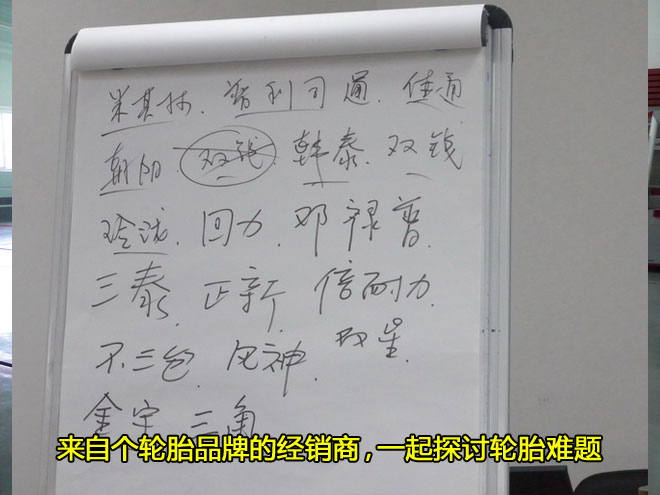 米其林. 普利司通. 佳通
朝阳. 双钱 韩泰. 双钱
玲珑. 回力. 邓禄普.
三泰. 正新. 倍耐力.
不三包. 风神. 双星.
金宇 三角
来自个轮胎品牌的经销商，一起探讨轮胎难题